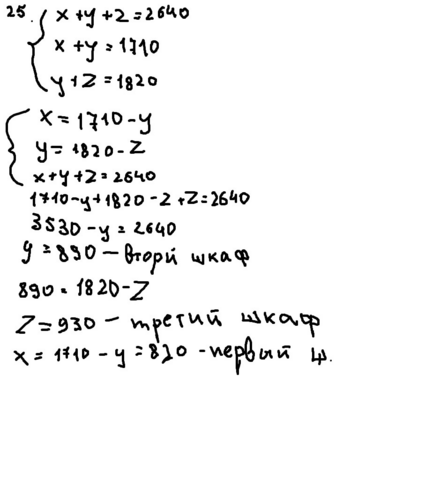 25. x + y + z = 2640
x + y = 1710
y + z = 1820
x = 1710 - y
y = 1820 - z
x + y + z = 2640
1710 - y + 1820 - z + z = 2640
3530 - y = 2640
y = 890 - вторй шкаф
890 = 1820 - z
z = 930 - третий шкаф
x = 1710 - y = 820 - первый ш.